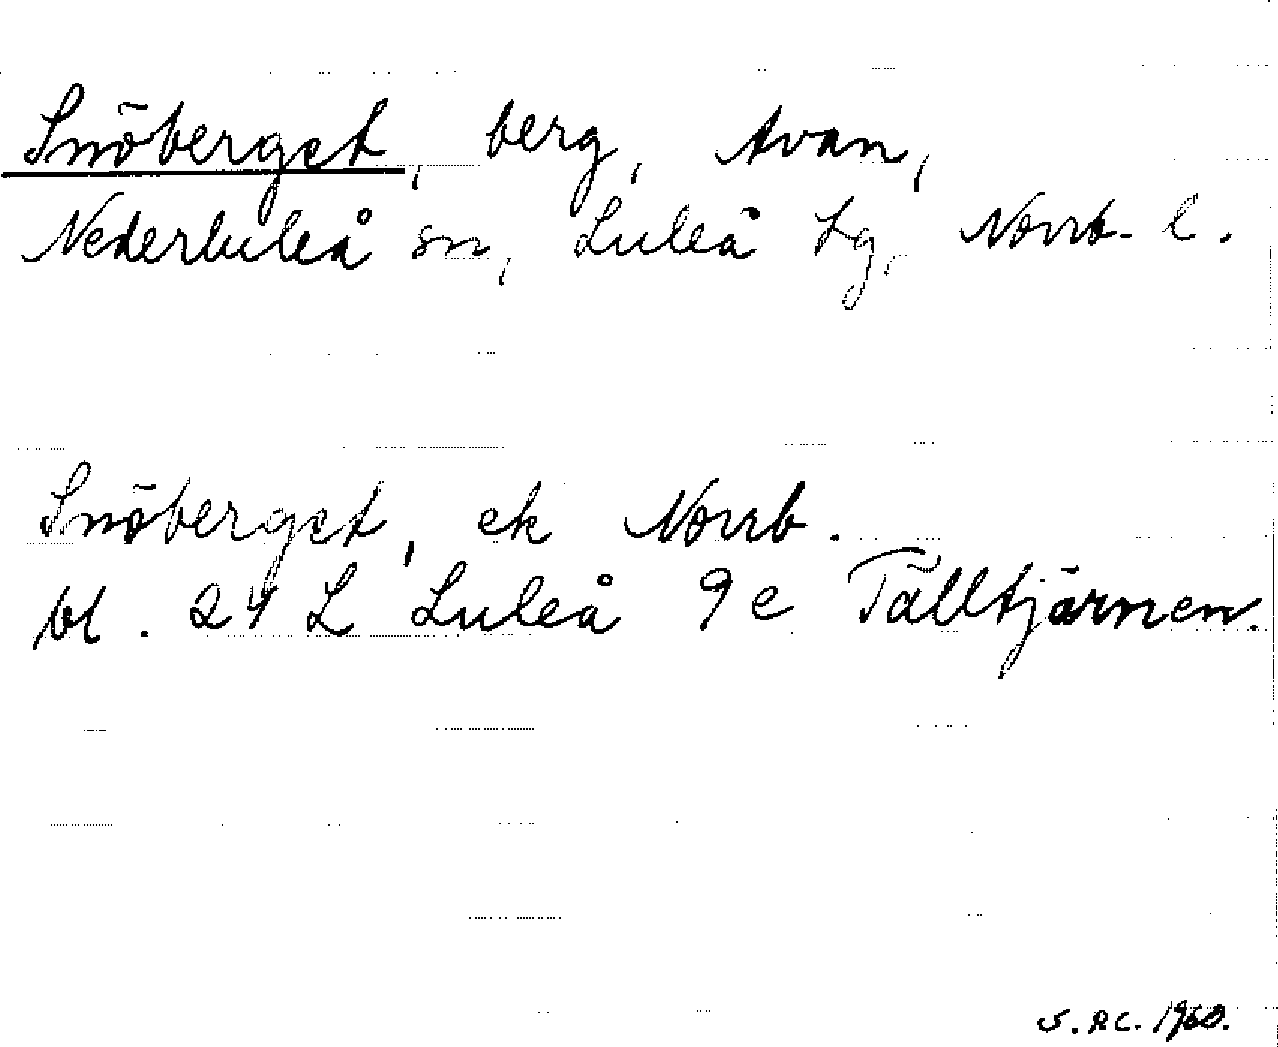 Snöberget, berg, Avan,
Nederluleå sn, Luleå tg, Norrb. l.
Snöberget, ek Norrb.
bl. 24 L Luleå 9e Tälltjärnen.
1960.